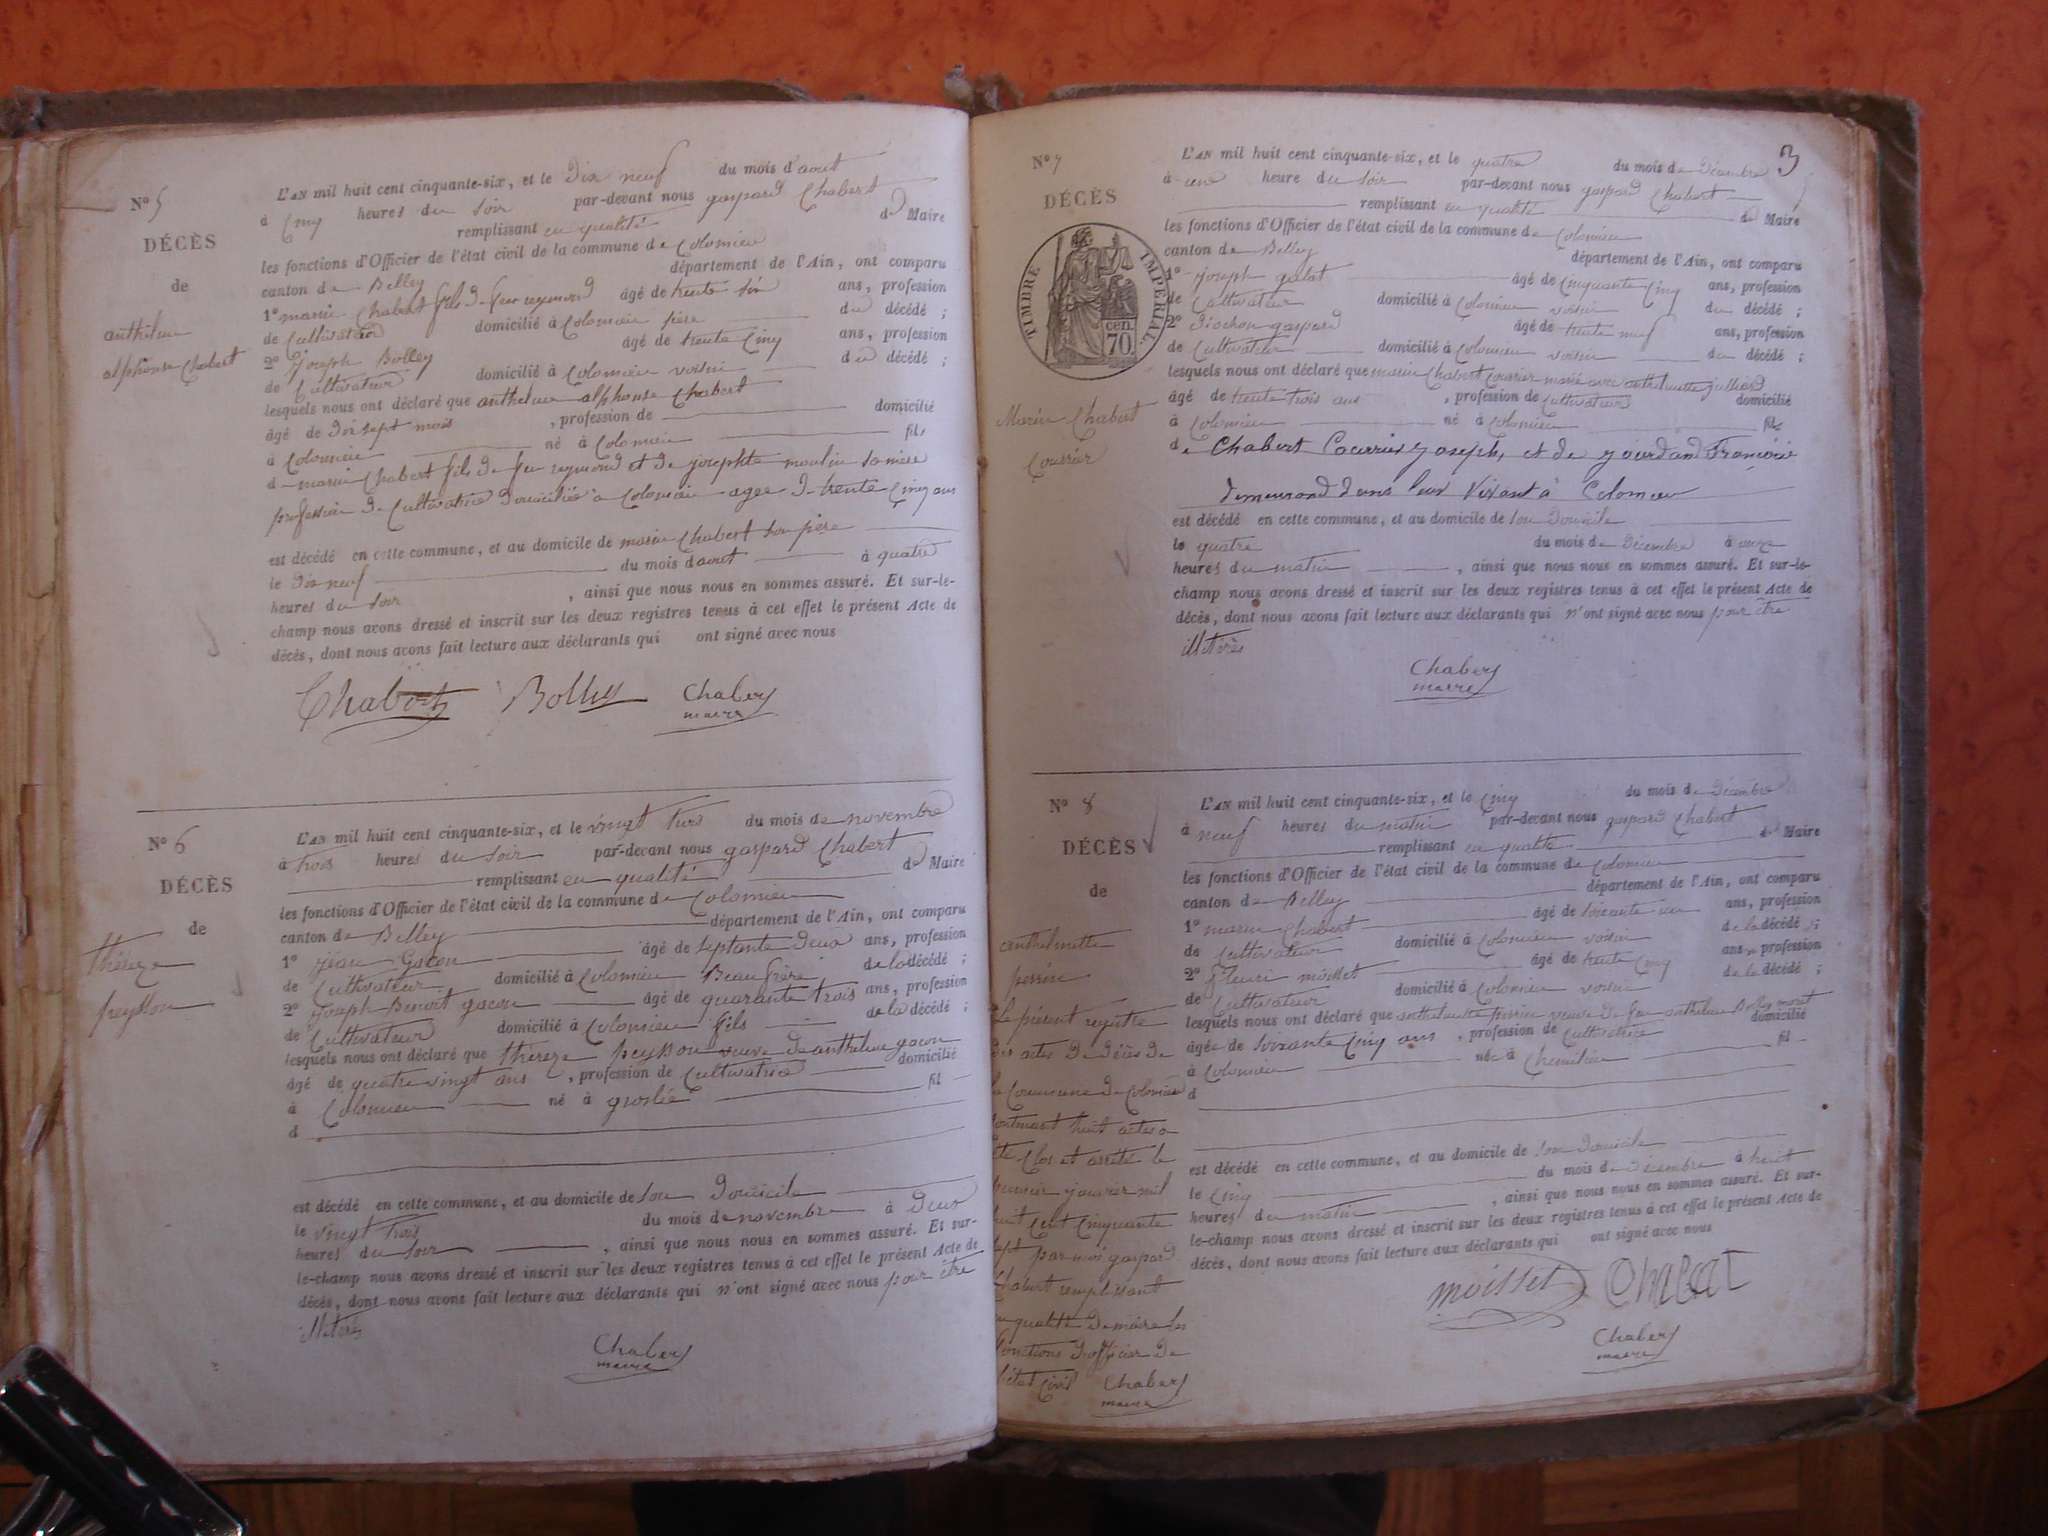 N° 5
DÉCÈS
de
anthelme
alphonse Chabert
L'AN mil huit cent cinquante-six, et le Dix neuf du mois d'aout
à Cinq heures du soir par-devant nous gaspard Chabert
remplissant en qualité de Maire
les fonctions d'Officier de l'état civil de la commune de Colomieu
canton de Belley département de l'Ain, ont comparu
1° marin Chabert fils de feu reymond âgé de trente six ans, profession
de Cultivateur domicilié à Colomieu père du décédé ;
2° Joseph Bolley âgé de trente Cinq ans, profession
de Cultivateur domicilié à Colomieu voisin du décédé ;
lesquels nous ont déclaré que anthelme alphonse Chabert
âgé de Dix sept mois , profession de domicilié
à Colomieu né à Colomieu fils
d marin Chabert fils de feu reymond et de josephte moulin sa mère
profession de Cultivatrice Domiciliés à Colomieu agée de trente Cinq ans
est décédé en cette commune, et au domicile de marin Chabert son père
le Dix neuf du mois d'aout à quatre
heures du soir , ainsi que nous nous en sommes assuré. Et sur-le-
champ nous avons dressé et inscrit sur les deux registres tenus à cet effet le présent Acte de
décès, dont nous avons fait lecture aux déclarants qui ont signé avec nous
Chabert Bolley Chabert
maire
N° 6
DÉCÈS
de
thérèze
peysson
L'AN mil huit cent cinquante-six, et le vingt trois du mois de novembre
à trois heures du soir par-devant nous gaspard Chabert
remplissant en qualité de Maire
les fonctions d'Officier de l'état civil de la commune de Colomieu
canton de Belley département de l'Ain, ont comparu
1° Jean Gacon âgé de septante deux ans, profession
de Cultivateur domicilié à Colomieu Beau frère de la décédé ;
2° Joseph Benoit gacon âgé de quarante trois ans, profession
de Cultivateur domicilié à Colomieu fils de la décédé ;
lesquels nous ont déclaré que thérèze peysson veuve de anthelme gacon
âgé de quatre vingt ans , profession de Cultivatrice domicilié
à Colomieu né à groslée fil
d
est décédé en cette commune, et au domicile de son Domicile
le vingt trois du mois de novembre à Deux
heures du soir , ainsi que nous nous en sommes assuré. Et sur-
le-champ nous avons dressé et inscrit sur les deux registres tenus à cet effet le présent Acte de
décès, dont nous avons fait lecture aux déclarants qui n'ont signé avec nous pour être
illitérés
Chabert
maire
3
N° 7
DÉCÈS
TIMBRE IMPÉRIAL.
70 cen.
Marin Chabert
Courrier
L'AN mil huit cent cinquante-six, et le quatre du mois de Décembre
à une heure du soir par-devant nous gaspard Chabert
remplissant en qualité de Maire
les fonctions d'Officier de l'état civil de la commune de Colomieu
canton de Belley département de l'Ain, ont comparu
1° Joseph âgé de Cinquante Cinq ans, profession
de Cultivateur domicilié à Colomieu voisin du décédé ;
2° Diochon gaspard âgé de trente neuf ans, profession
de Cultivateur domicilié à Colomieu voisin du décédé ;
lesquels nous ont déclaré que marin Chabert Courrier marié avec anthelmette julliard
âgé de trente trois ans , profession de Cultivateur domicilié
à Colomieu né à Colomieu fils
de Chabert Courrier Joseph, et de Jourdan Françoise
demeurand dans leur vivant à Colomieu
est décédé en cette commune, et au domicile de son Domicile
le quatre du mois de Décembre à onze
heures du matin , ainsi que nous nous en sommes assuré. Et sur-le-
champ nous avons dressé et inscrit sur les deux registres tenus à cet effet le présent Acte de
décès, dont nous avons fait lecture aux déclarants qui n'ont signé avec nous pour être
illitérés
Chabert
maire
N° 8
DÉCÈS
de
anthelmette
perrin
L'AN mil huit cent cinquante-six, et le Cinq du mois de Décembre
à neuf heures du matin par-devant nous gaspard Chabert
remplissant en qualité de Maire
les fonctions d'Officier de l'état civil de la commune de Colomieu
canton de Belley département de l'Ain, ont comparu
1° marin Chabert âgé de soixante un ans, profession
de Cultivateur domicilié à Colomieu voisin de la décédé ;
2° fleuri moisset âgé de trente Cinq ans, profession
de Cultivateur domicilié à Colomieu voisin de la décédé ;
lesquels nous ont déclaré que anthelmette perrin veuve de feu anthelme Bolley
âgée de soixante Cinq ans , profession de Cultivatrice domicilié
à Colomieu née à Chemilieu fil
d
est décédé en cette commune, et au domicile de son Domicile
le Cinq du mois de Décembre à huit
heures du matin , ainsi que nous nous en sommes assuré. Et sur-
le-champ nous avons dressé et inscrit sur les deux registres tenus à cet effet le présent Acte de
décès, dont nous avons fait lecture aux déclarants qui ont signé avec nous
moisset Chabert
Chabert
maire
Le présent registre
des actes de Décès de
la Commune de Colomieu
contenant huit actes a
été Clos et arrêté le
premier janvier mil
huit Cent Cinquante
sept par moi gaspard
Chabert remplissant
en qualité de maire les
fonctions d'officier de
l'état Civil Chabert
maire